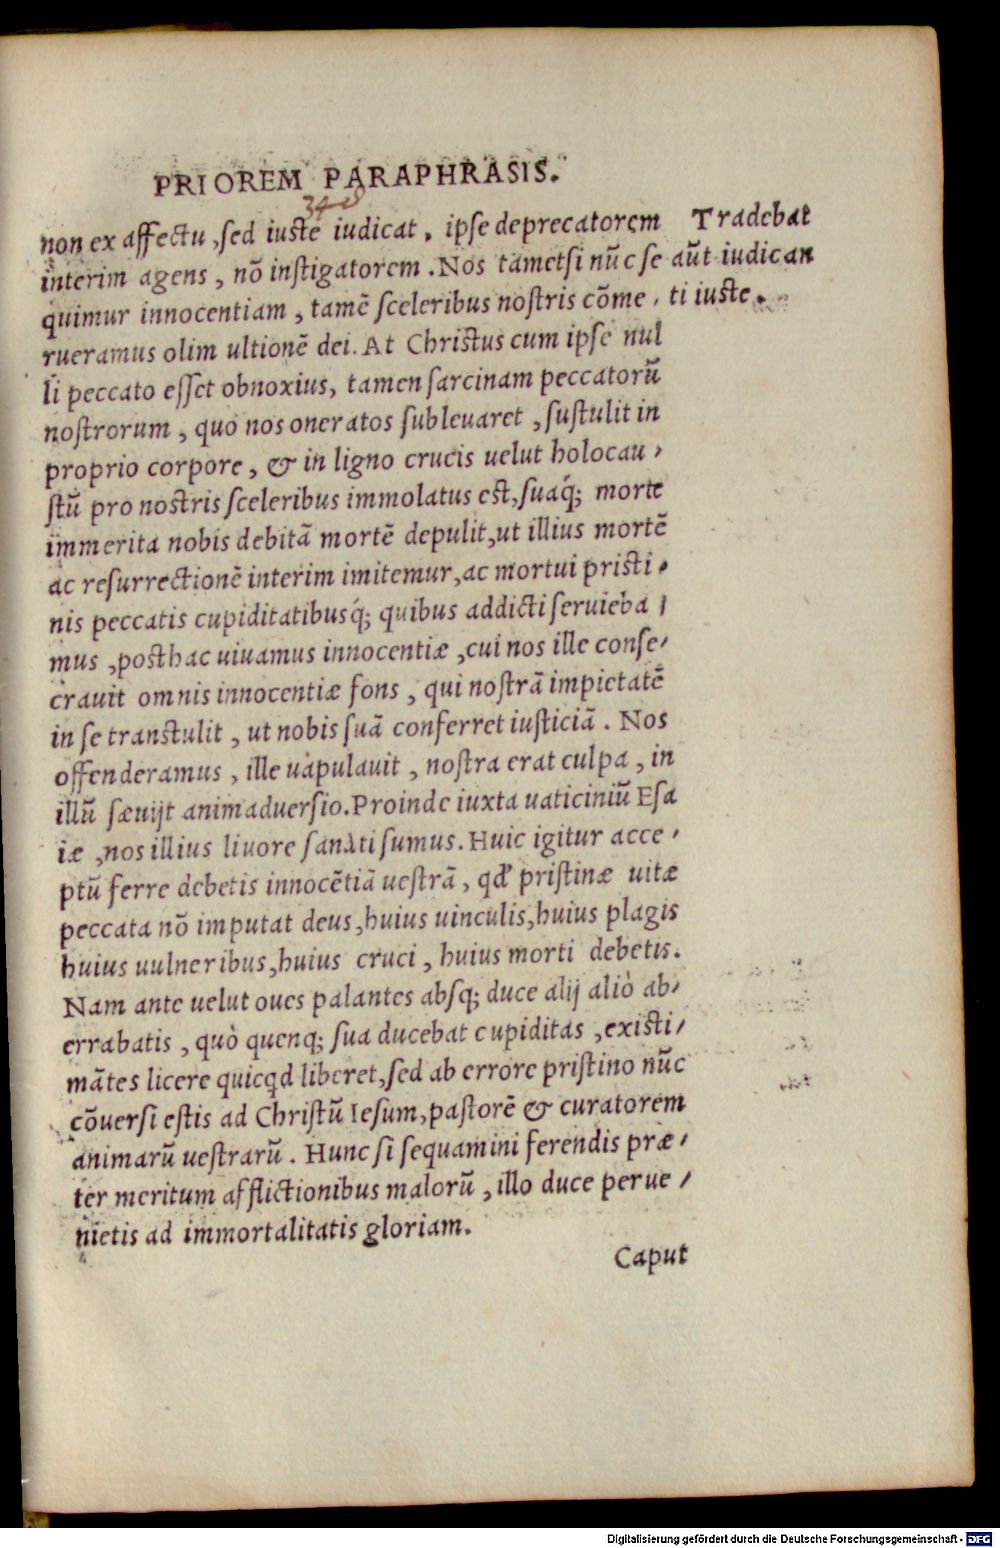 PRIOREM PARAPHRASIS.
non ex affectu, sed iuste iudicat, ipse deprecatorem
interim agens, nõ instigatorem. Nos tametsi nũc se
quimur innocentiam, tamẽ sceleribus nostris cõme,
rueramus olim ultionẽ dei. At Christus cum ipse nul
li peccato esset obnoxius, tamen sarcinam peccatorũ
nostrorum, quo nos oneratos subleuaret, sustulit in
proprio corpore, & in ligno crucis uelut holocau,
stũ pro nostris sceleribus immolatus est, suaq́; morte
immerita nobis debitã mortẽ depulit, ut illius mortẽ
ac resurrectionẽ interim imitemur, ac mortui pristi,
nis peccatis cupiditatibusq́; quibus addicti seruieba /
mus, posthac uiuamus innocentiæ, cui nos ille conse,
crauit omnis innocentiæ fons, qui nostrã impietatẽ
in se transtulit, ut nobis suã conferret iusticiã. Nos
offenderamus, ille uapulauit, nostra erat culpa, in
illũ sæuijt animaduersio. Proinde iuxta uaticiniũ Esa
iæ, nos illius liuore sanati sumus. Huic igitur acce,
ptũ ferre debetis innocẽtiã uestrã, qđ pristinæ uitæ
peccata nõ imputat deus, huius uinculis, huius plagis
huius uulneribus, huius cruci, huius morti debetis.
Nam ante uelut oues palantes absq; duce alij aliò ab,
errabatis, quò quenq; sua ducebat cupiditas, existi/
mãtes licere quicqd liberet, sed ab errore pristino nũc
cõuersi estis ad Christũ Iesum, pastorẽ & curatorem
animarũ uestrarũ. Hunc si sequamini ferendis præ,
ter meritum afflictionibus malorũ, illo duce perue /
nietis ad immortalitatis gloriam.
Caput
Tradebat
aũt iudican
ti iuste.
Digitalisierung gefördert durch die Deutsche Forschungsgemeinschaft - DFG